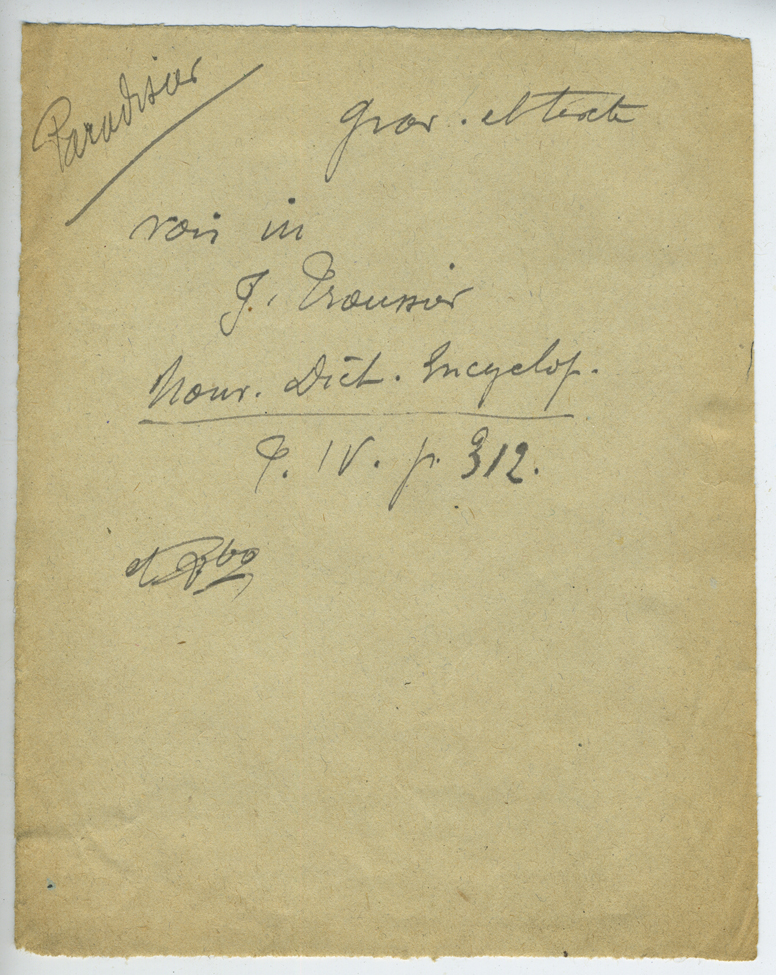 Paradisier
Grav. et texte
voir in
J. Trousset
Nouv. Dict. Encyclop.
T. IV. p. 312.